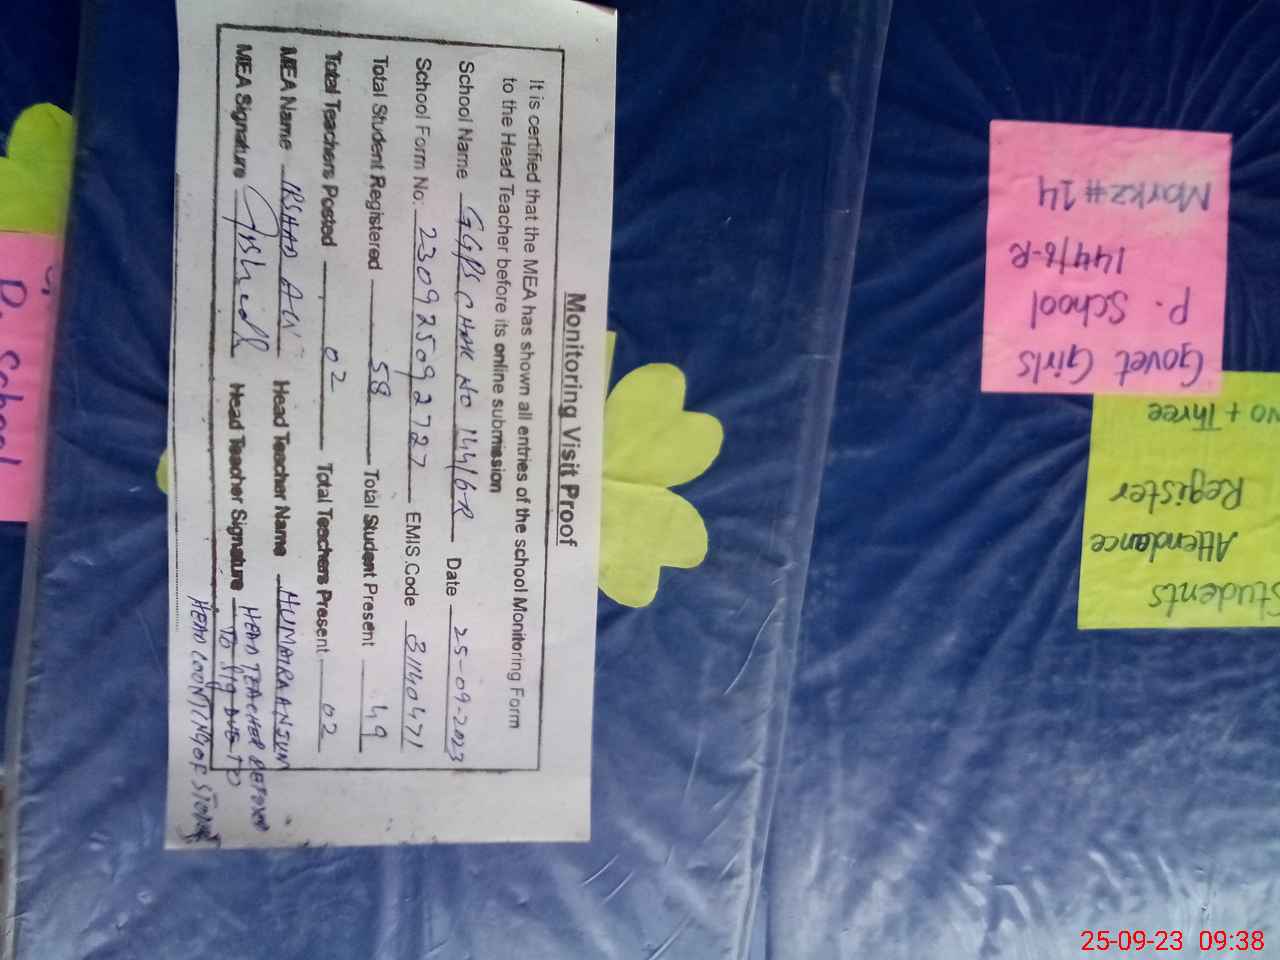 Monitoring Visit Proof
It is certified that the MEA has shown all entries of the school Monitoring Form
to the Head Teacher before its online submission
School Name GGPS CHAK NO 144/6-R Date 25-09-2023
School Form No: 230925092727 EMIS Code 31140471
Total Student Registered 58 Total Student Present 49
Total Teachers Posted 02 Total Teachers Present 02
MEA Name IRSHAD ALI Head Teacher Name HUMAIRA ANJUM
MEA Signature Irshad Head Teacher Signature
HEAD TEACHER REFUSED
TO SIG DUE TO
HEAD COUNTING OF
Govet Girls
P. School
144/6-R
Morkz#14
Students
Attendance
Register
+ Three
P. School
25-09-23 09:38